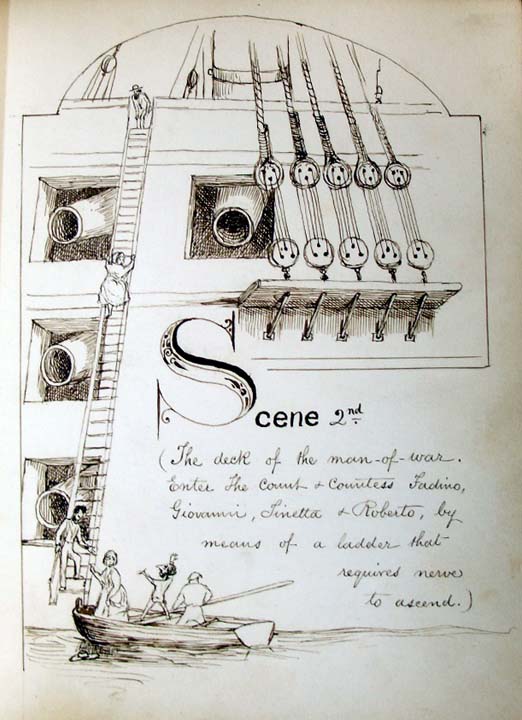 Scene 2nd.
(The deck of the man-of-war.
Enter The Count & Countess Fadino,
Giovanni, Finetta & Roberto, by
means of a ladder that
requires nerve
to ascend.)